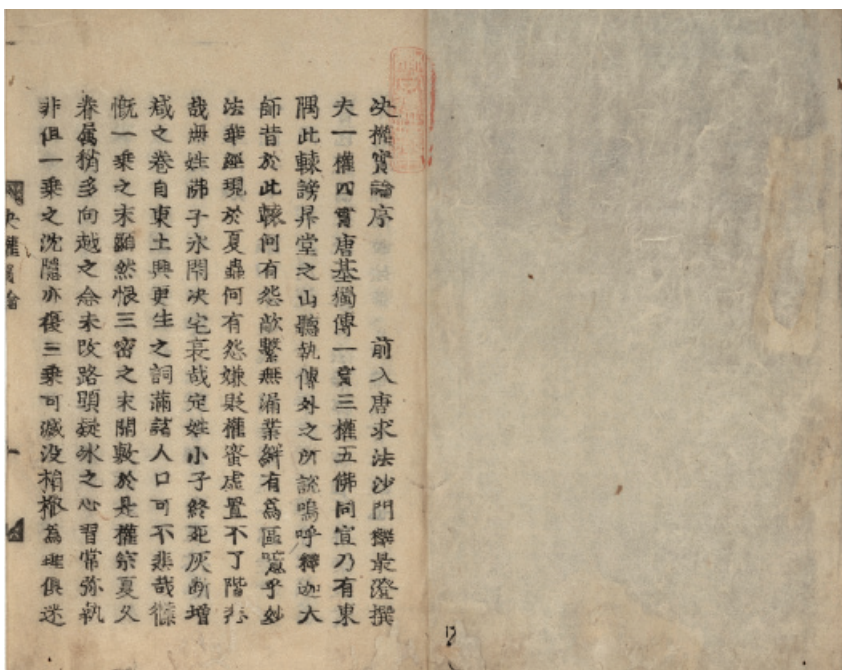 决權實論序 前入唐求法沙門釋最澄撰
夫一權四實唐基獨傳一實三權五佛同宣乃有東
隅此轅謗昇堂之山聽執傳外之所談嗚呼釋迦大
師昔於此轅何有怨敵繫無漏業繩有為區寰乎妙
法華經現於夏蟲何有怨嫌貶權蜜虛置不了階悲
哉無姓佛子永閉决宅哀哉定姓小子終死灰斷增
減之卷自東土興更生之詞滿諸人口可不悲哉
慨一乘之未顯然恨三密之未開敷於是權宗夏久
眷属稍多向越之念未改路頭凝氷之心習常弥執
非但一乘之沈隱亦復三乘可滅没稍權為俱迷
决權實論
一
12